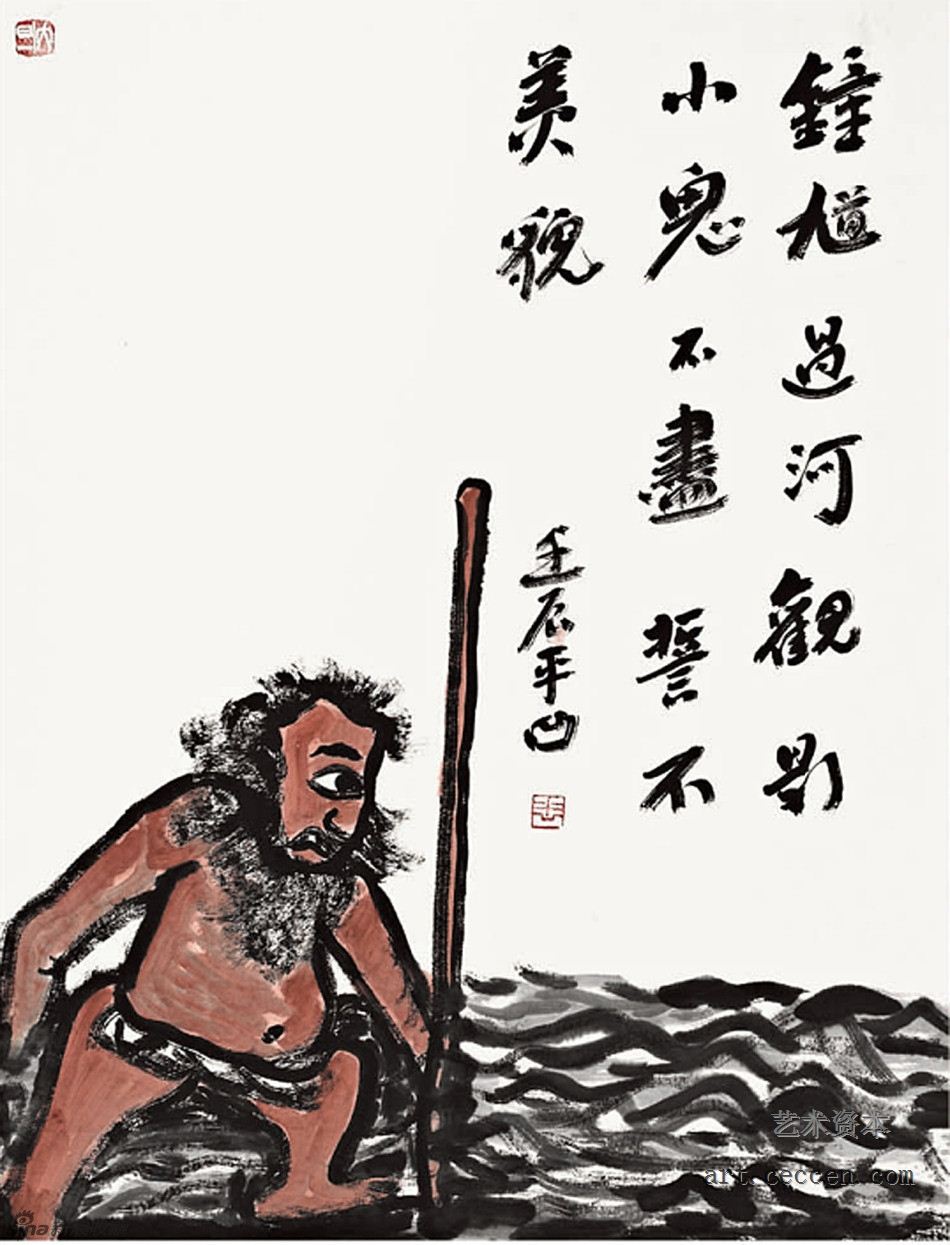 鐘馗過河觀
小鬼不盡誓不
美貌
壬辰平凹
艺术资本
art.ceccen.com